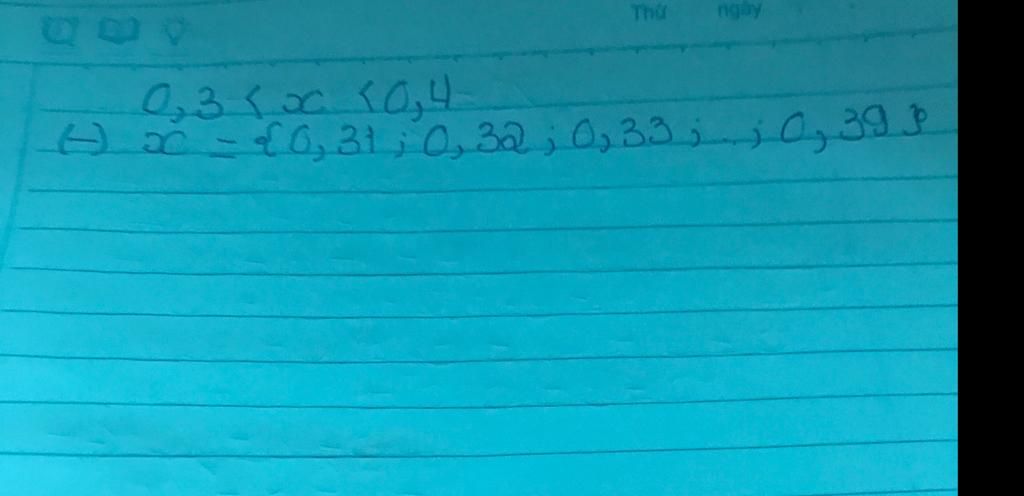 Thứ ngày
0,3 < x < 0,4
(-) x = {0,31 ; 0,32 ; 0,33 ; .. ; 0,39}